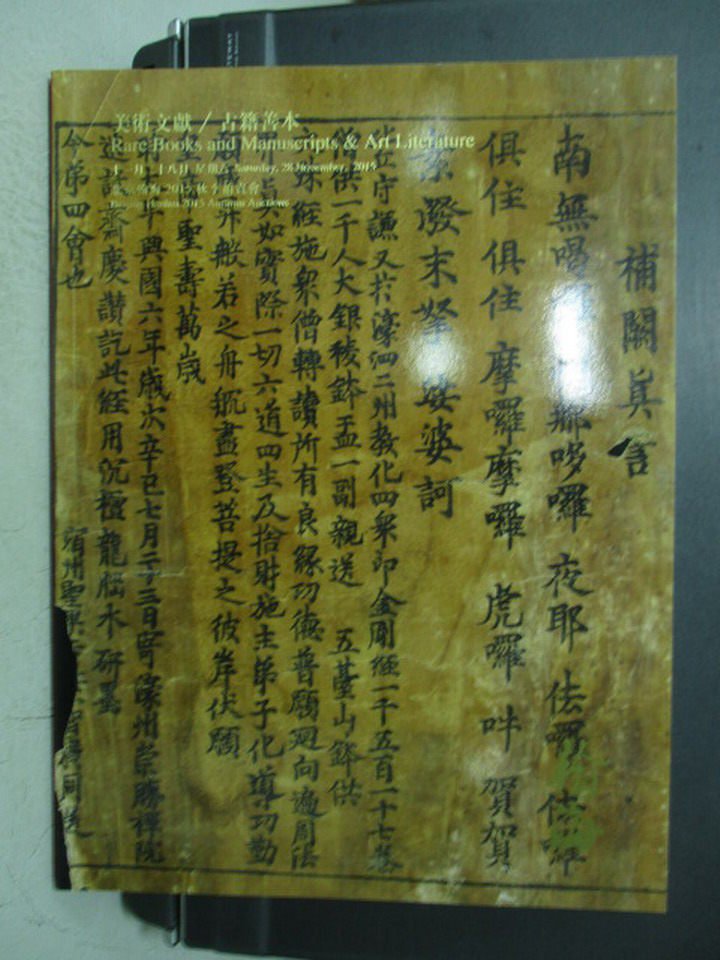 美術文獻／古籍善本
Rare Books and Manuscripts & Art Literature
十一月二十八日 星期六 Saturday, 28 November, 2015
2015秋季拍賣會
2015 Autumn Auctions
補闕真言
南無喝 哆囉 夜耶 佉囉 佉
俱住 俱住 摩囉摩囉 虎囉 吽 賀賀
潑末拏 婆訶
守謙又於濠泗二州教化四眾印金剛經一千五百一十七卷
供一千人大銀稜鉢盂一副親送 五臺山鉢供
經施眾僧轉讀所有良緣功德普願迴向遍周法
真如實際一切六道四生及捨財施主弟子化導功勤
般若之舟航盡登菩提之彼岸伏願
聖壽萬歲
興國六年歲次辛巳七月二十三日寄濠州崇勝禪院
齋慶讚訖此經用沉檀龍腦水研墨
今第四會也
宿州